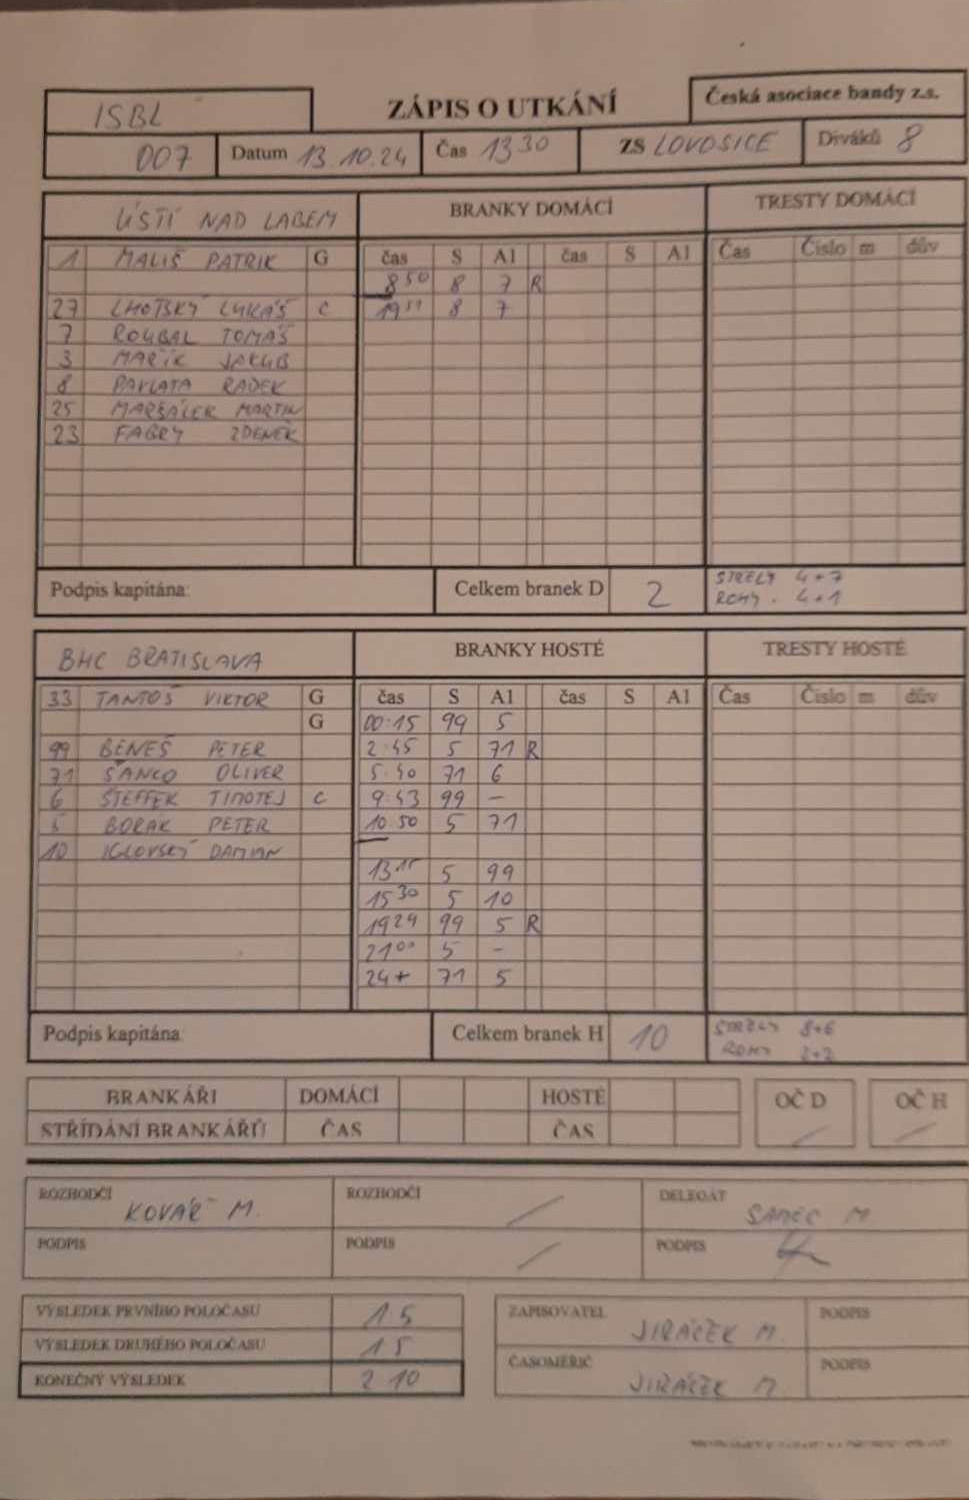 ISBL ZÁPIS O UTKÁNÍ Česká asociace bandy z.s.
007 Datum 13.10.24 Čas 13 30 ZS LOVOSICE Diváků 8
ÚSTÍ NAD LABEM BRANKY DOMÁCÍ TRESTY DOMÁCÍ
1 MALIŠ PATRIK G čas S A1 čas S A1 Čas Číslo m dův
8 50 8 7 R
27 LHOTSKÝ LUKÁŠ C 19 51 8 7
7 ROUBAL TOMÁŠ
3 MAŘÍK JAKUB
8 PAVLATA RADEK
25 MARŠÁLEK MARTIN
23 FABRY ZDENĚK
Podpis kapitána: Celkem branek D 2 STŘELY 4+7
ROHY. 4+1
BHC BRATISLAVA BRANKY HOSTÉ TRESTY HOSTÉ
33 TANTOŠ VIKTOR G čas S A1 čas S A1 Čas Číslo m dův
G 00:15 99 5
99 BENEŠ PETER 2:45 5 71 R
71 ŠANCO OLIVER 5:40 71 6
6 ŠTEFFEK TIMOTEJ C 9:43 99 -
5 BORÁK PETER 10 50 5 71
10 IGLOVSKÝ DAMIAN
13 15 5 99
15 30 5 10
19 29 99 5 R
21 00 5 -
24+ 71 5
Podpis kapitána: Celkem branek H 10 STŘELY 8+6
ROHY 2+2
BRANKÁŘI DOMÁCÍ HOSTÉ OČ D OČ H
STŘÍDÁNÍ BRANKÁŘŮ ČAS ČAS / /
ROZHODČÍ KOVÁŘ M. ROZHODČÍ / DELEGÁT SAMEC M
PODPIS PODPIS / PODPIS
VÝSLEDEK PRVNÍHO POLOČASU 1 5 ZAPISOVATEL JIRÁČEK M. PODPIS
VÝSLEDEK DRUHÉHO POLOČASU 1 5
KONEČNÝ VÝSLEDEK 2 10 ČASOMĚŘIČ JIRÁČEK M. PODPIS